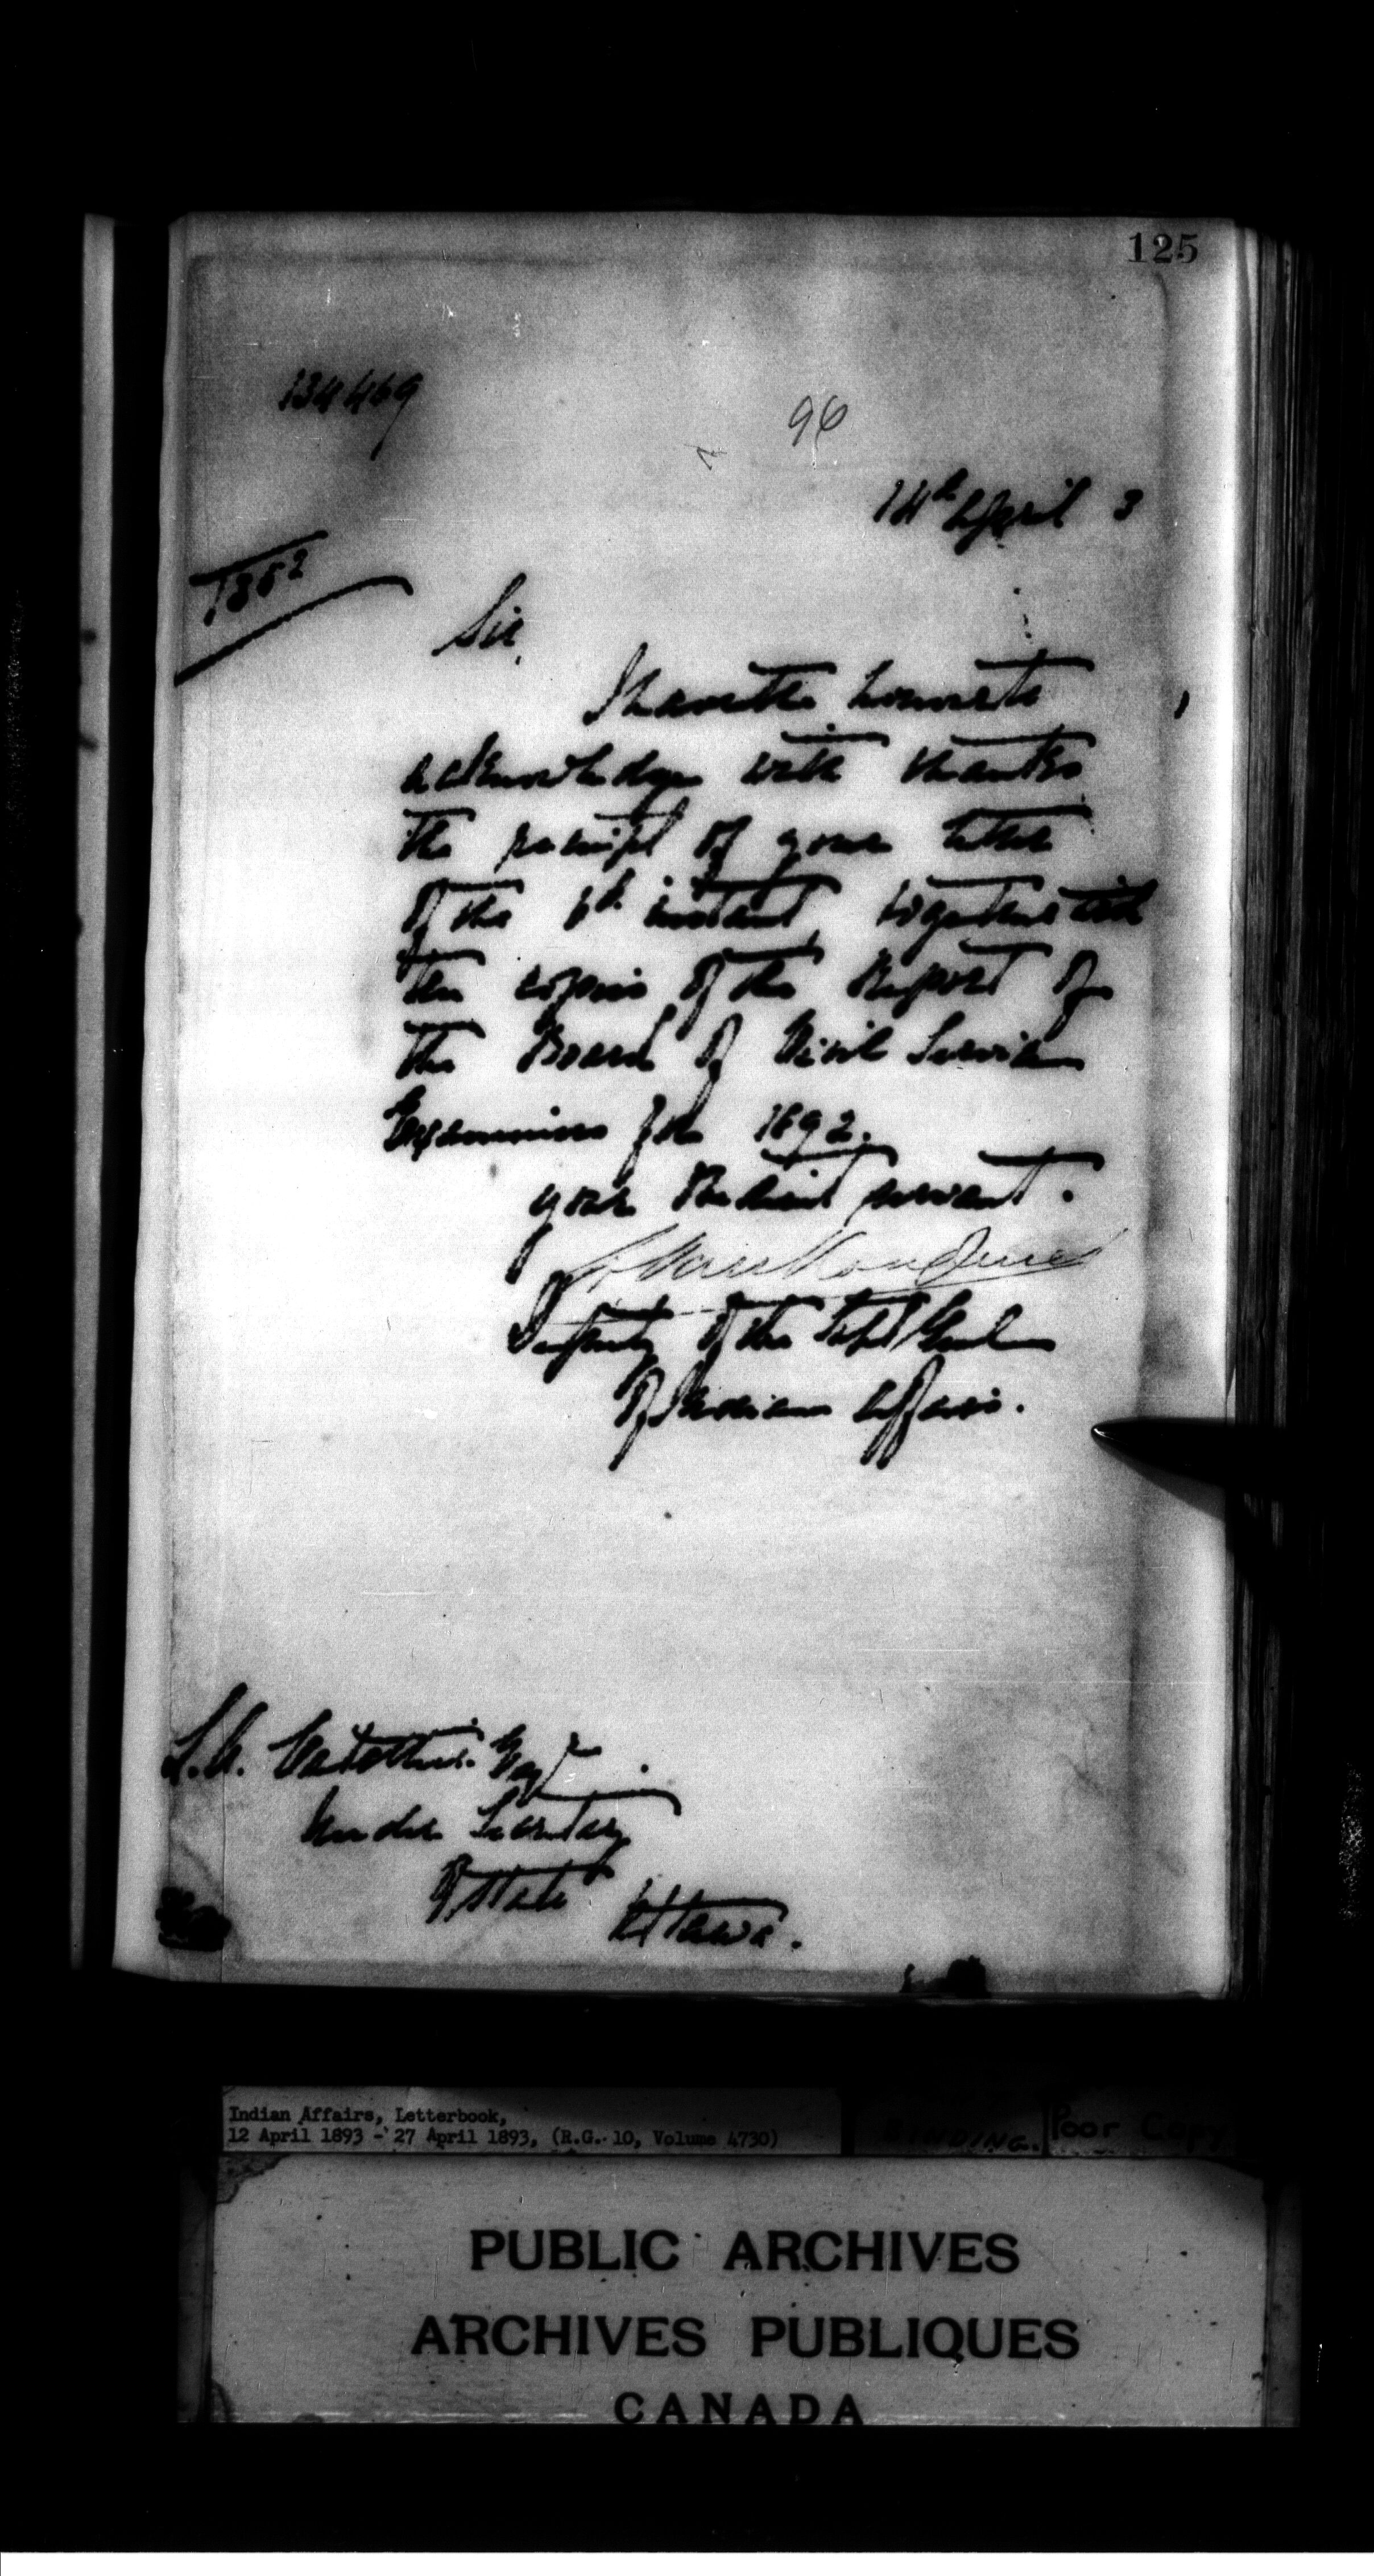 125
134469
96
14th April 3
Sir,
I have the honour to
acknowledge with thanks
the receipt of your letter
of the 6th instant, together with
the copies of the Report of
the Board of Civil Service
Examiners for 1892.
your obedient servant.
Deputy of the Supt Genl
of Indian Affairs.
L.A. Catellier Esqr
Under Secretary
of State
Ottawa.
Indian Affairs, Letterbook,
12 April 1893 - 27 April 1893, (R.G. 10, Volume 4730)
BINDING.
Poor Copy
PUBLIC ARCHIVES
ARCHIVES PUBLIQUES
CANADA